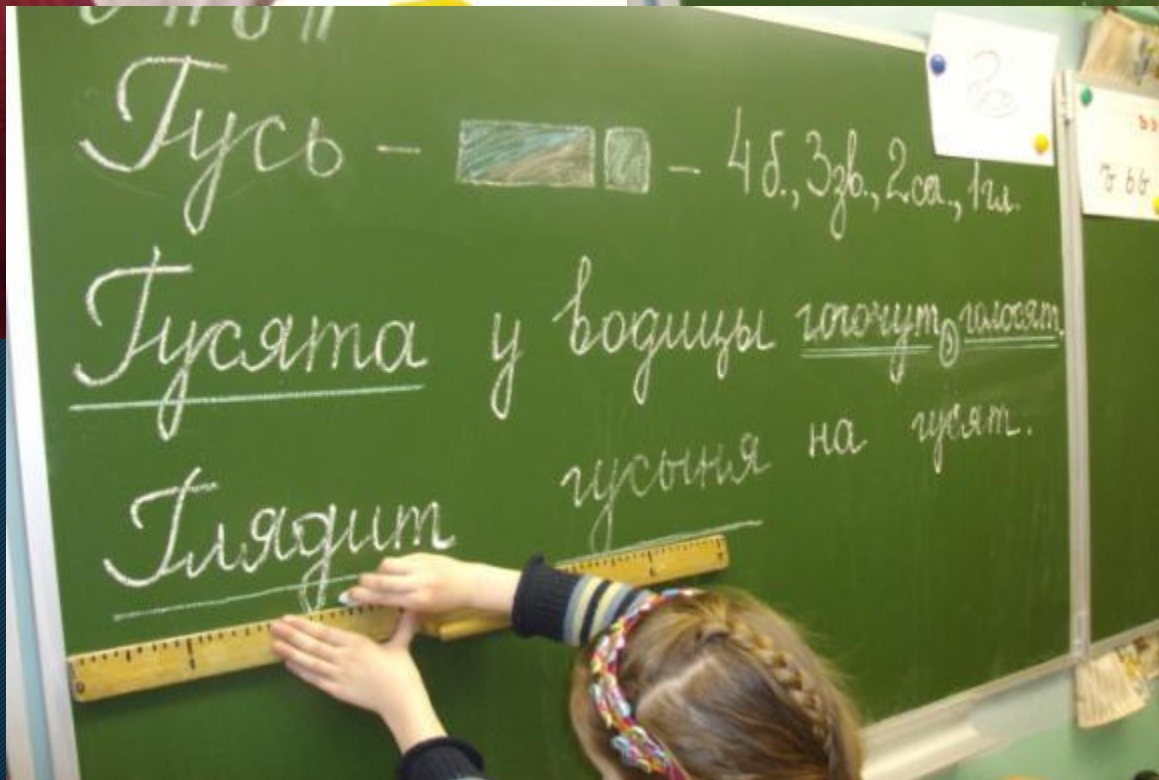 Гусь – – 4 б., 3 зв., 2 сог., 1 гл.
Гусята у водицы гогочут, голосят.
Глядит гусыня на гусят.